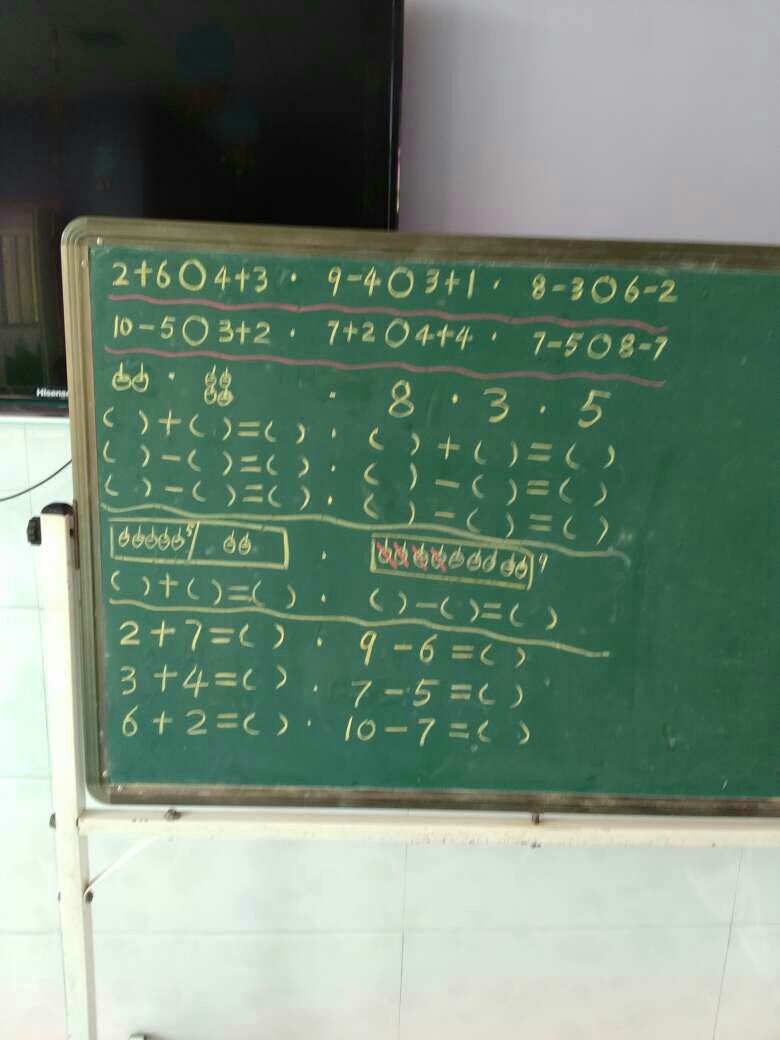 Hisense
2+6○4+3 · 9-4○3+1 · 8-3○6-2
10-5○3+2 · 7+2○4+4 · 7-5○8-7
8 · 3 · 5
( )+( )=( ) · ( )+( )=( )
( )-( )=( ) · ( )-( )=( )
( )-( )=( ) · ( )-( )=( )
5 · 9
( )+( )=( ) · ( )-( )=( )
2+7=( ) · 9-6=( )
3+4=( ) · 7-5=( )
6+2=( ) · 10-7=( )